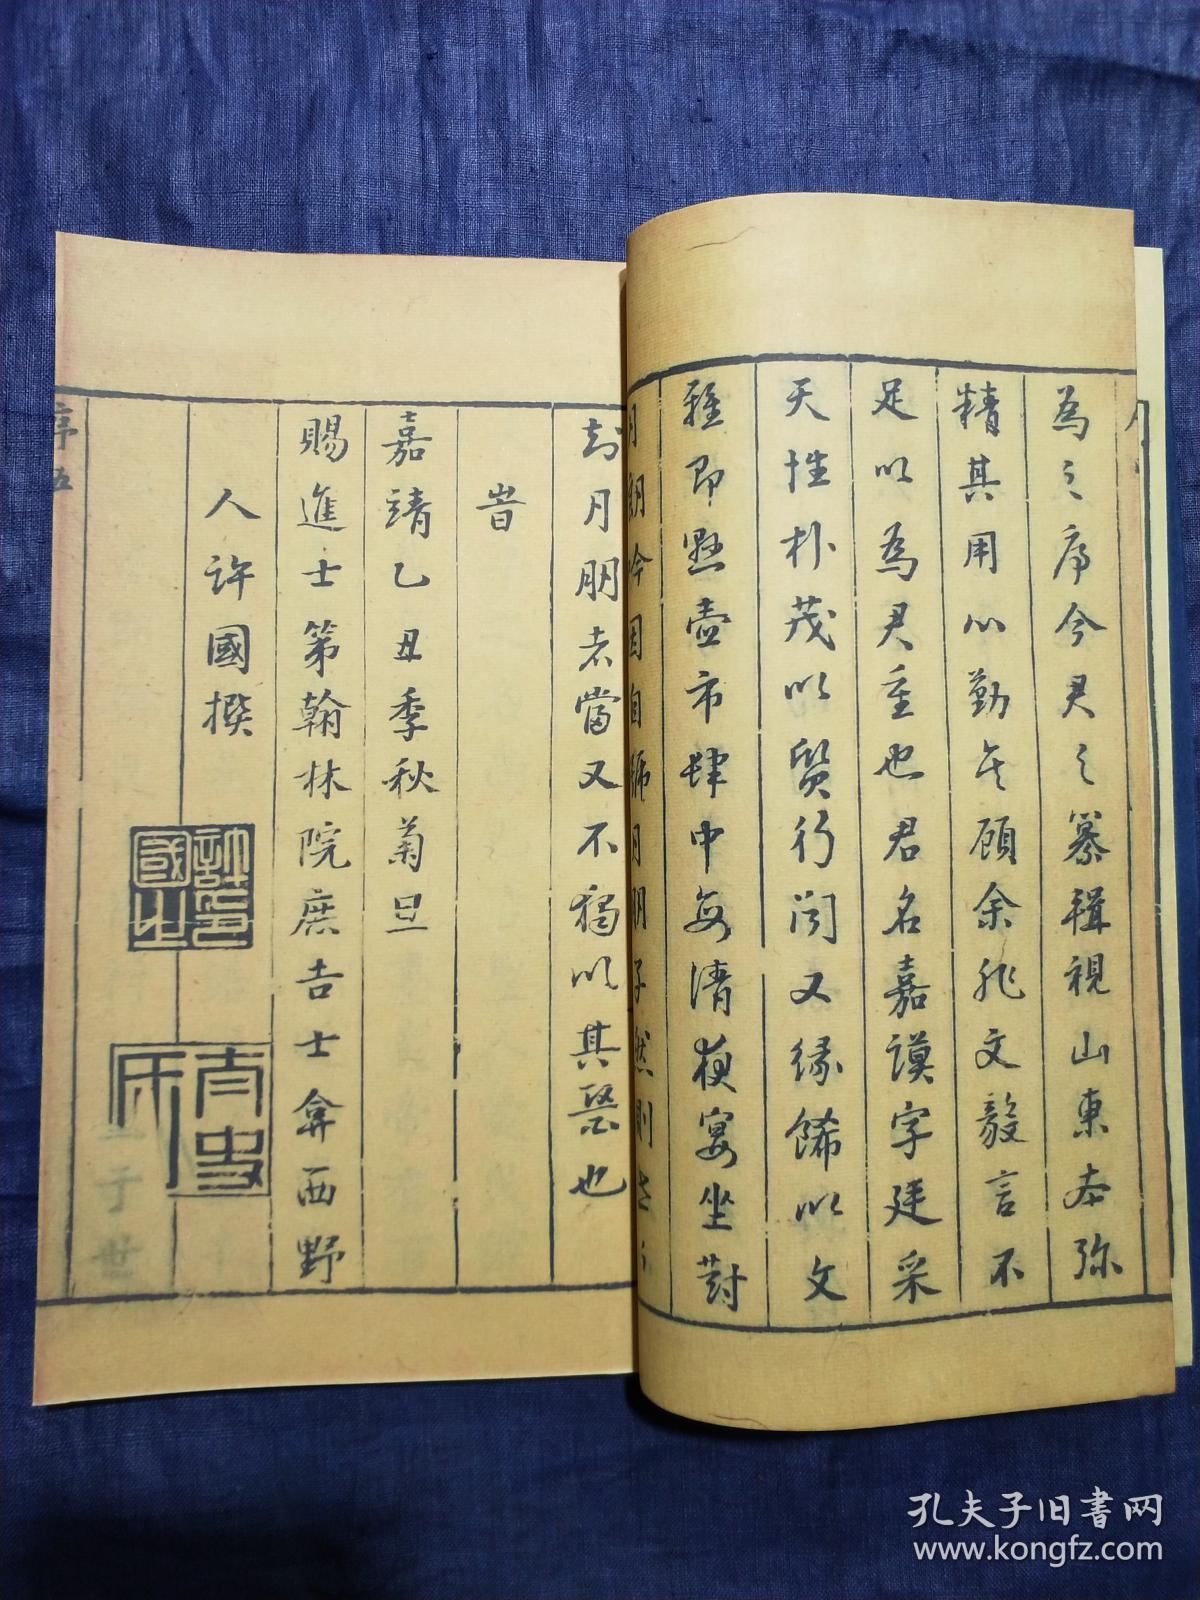 為之序今君之纂輯視山東本弥
精其用心勤矣顧余非文毅言不
足以為君重也君名嘉謨字廷采
天性朴茂以質行聞又緣餙以文
雅即懸壺市肆中每清夜宴坐對
月朗吟因自號月朋子然則世
知月朋者當又不獨以其毉也
旹
嘉靖乙丑季秋菊旦
賜進士第翰林院庶吉士弇西野
人許國撰
許國之印
太史氏
序五
孔夫子旧书网
www.kongfz.com